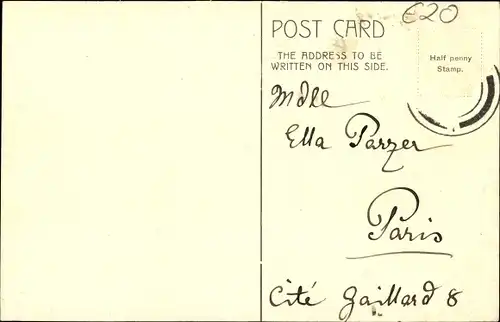 POST CARD
THE ADDRESS TO BE
WRITTEN ON THIS SIDE.
€20
Half penny
Stamp.
Mdlle
Ella Parzer
Paris
Cité Gaillard 8